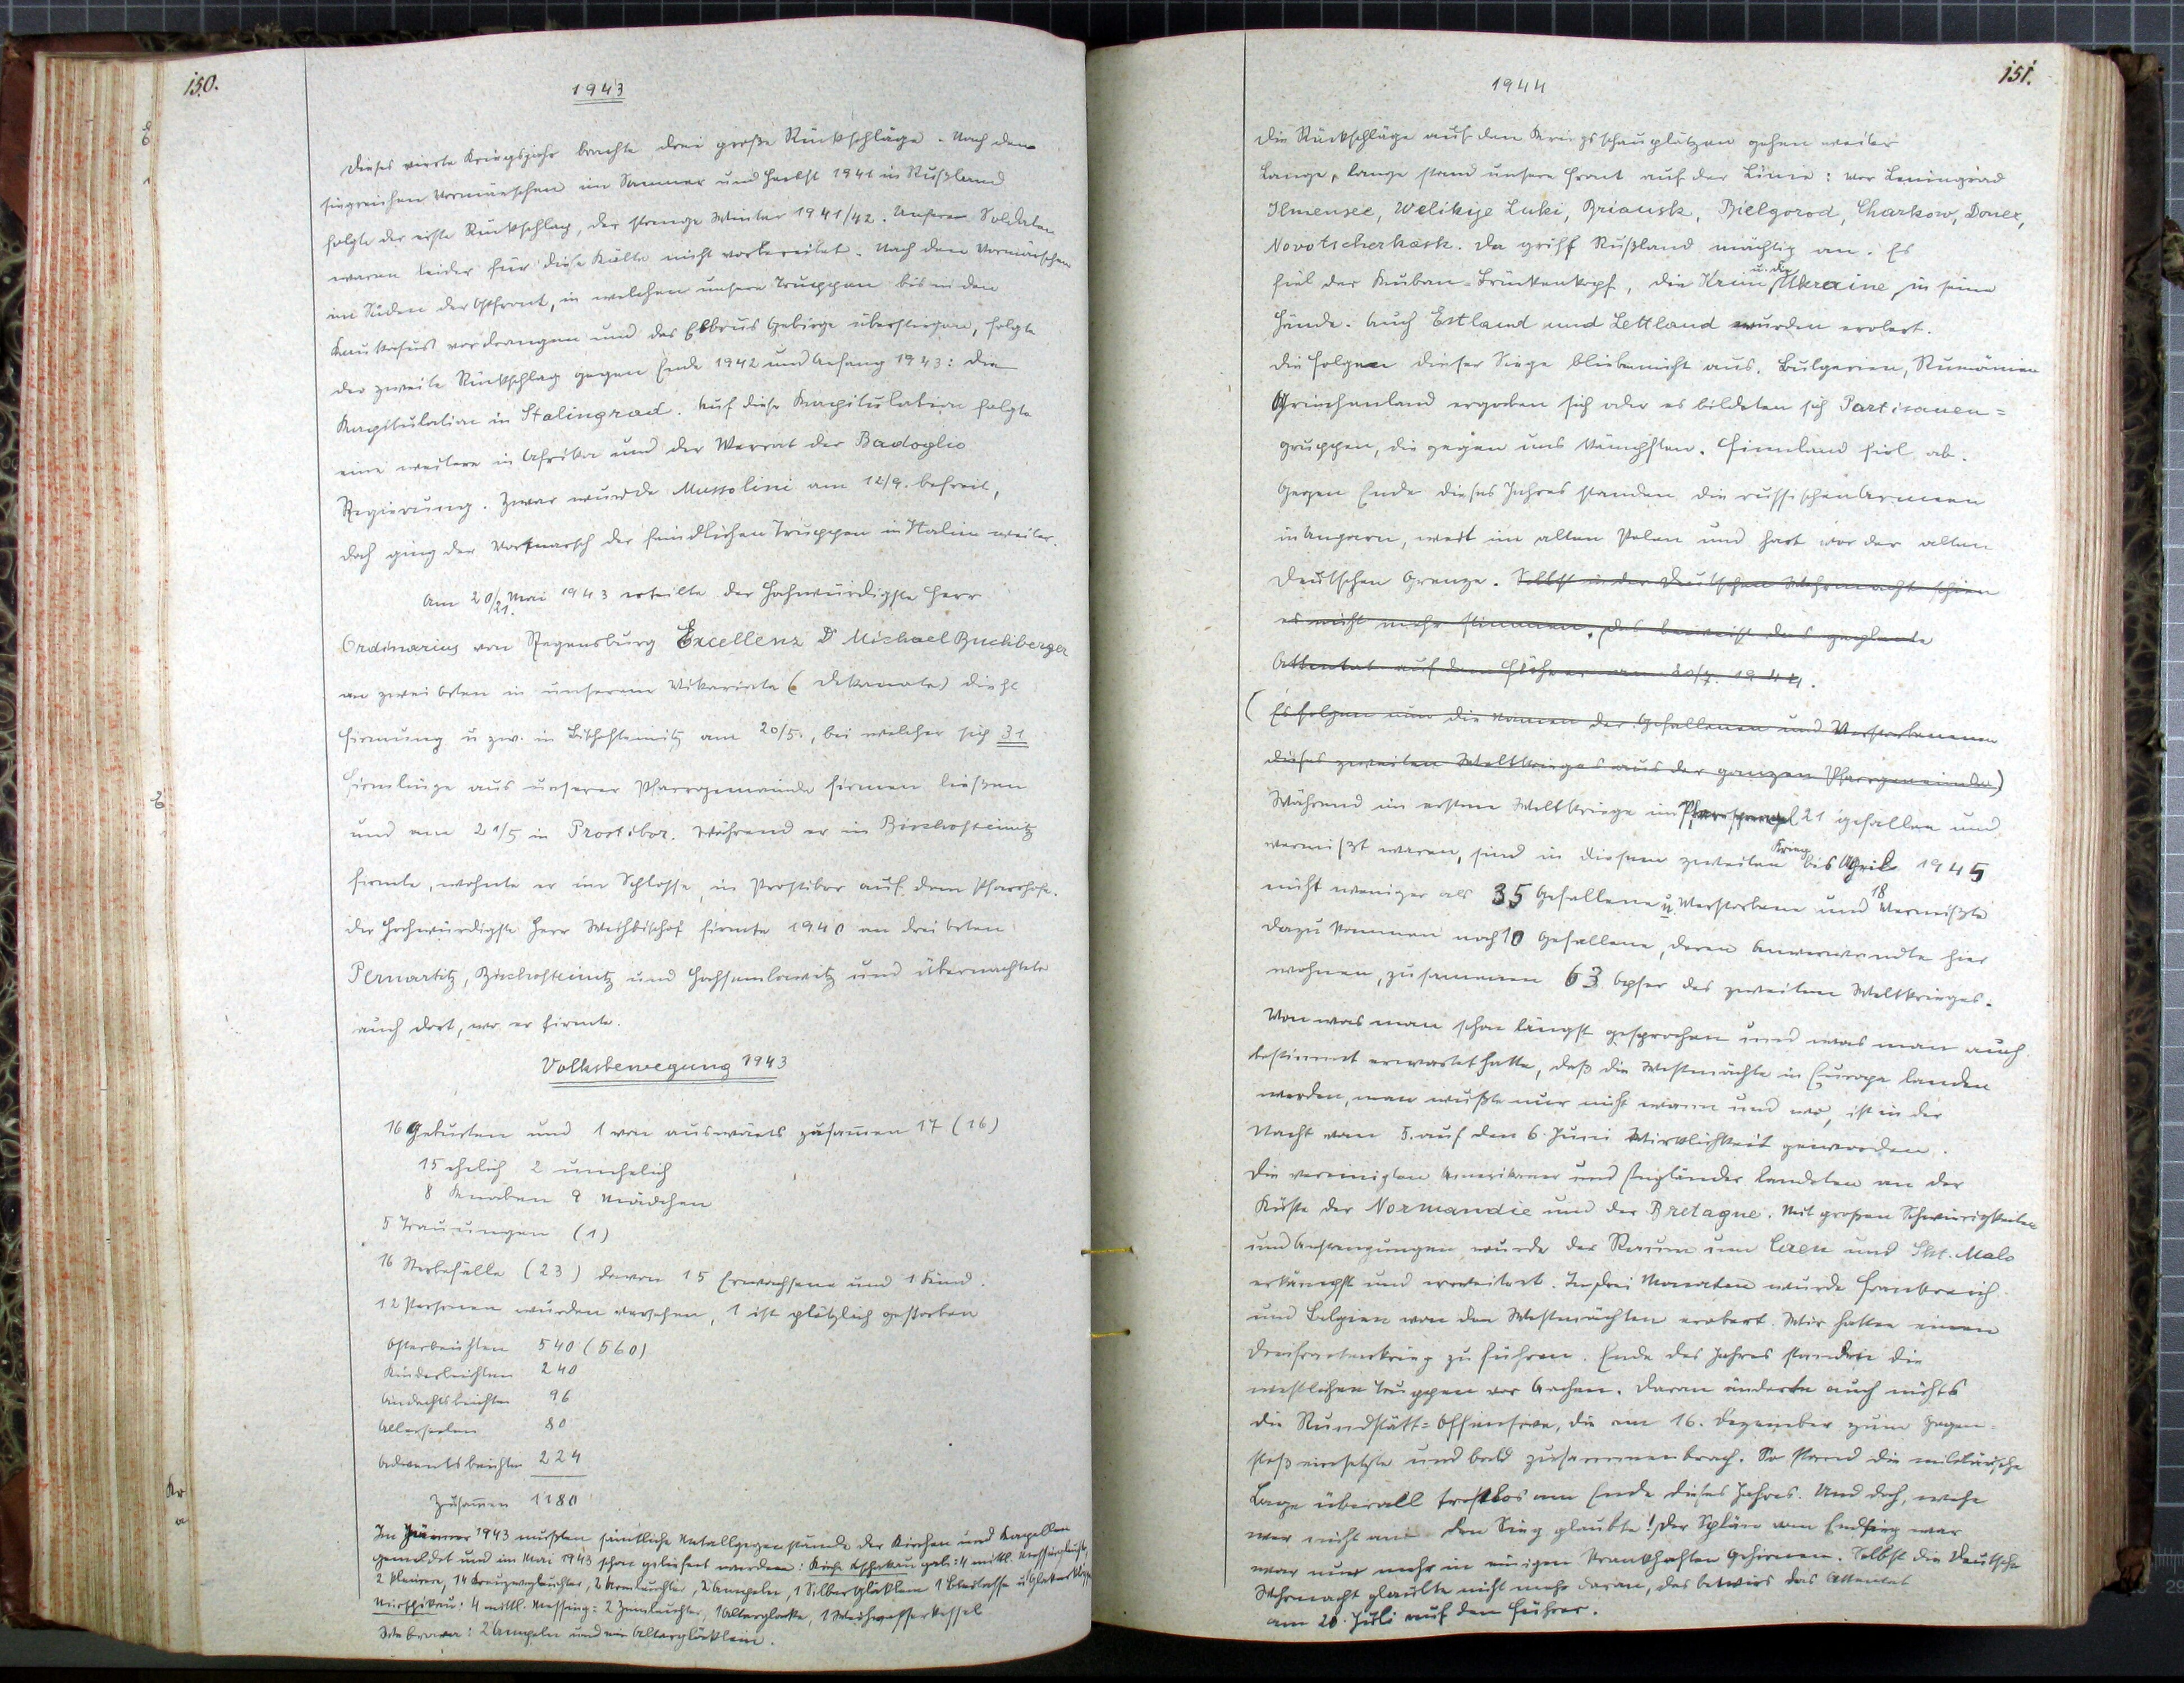 150.
1943
Dieses vierte Kriegsjahr brachte drei große Rückschläge. Nach den
siegreichen Vormärschen im Sommer und Herbst 1941 in Rußland
folgte der erste Rückschlag, der strenge Winter 1941/42. Unsere Soldaten
waren leider für diese Kälte nicht vorbereitet. Nach den Vormärschen
im Süden der Ostfront, in welchen unsere Truppen bis in den
Kaukasus vordrangen und das Elbrus Gebirge überstiegen, folgte
der zweite Rückschlag gegen Ende 1942 und Anfang 1943: die
Kapitulation in Stalingrad. Auf diese Kapitulation folgte
eine weitere in Afrika und der Verrat der Badoglio
Regierung. Zwar wurde Mussolini am 12/9. befreit,
doch ging der Vormarsch der feindlichen Truppen in Italien weiter.
Am 20/21. Mai 1943 erteilte der Hochwürdigste Herr
Ordinarius von Regensburg Excellenz Dr Michael Buchberger
an zwei Orten in unserem Vikariate (Dekanate) die hl
Firmung u zw. in Bischofteinitz am 20/5., bei welcher sich 31
Firmlinge aus unserer Pfarrgemeinde firmen ließen
und am 21/5 in Prostibor. Während er in Bischofteinitz
firmte, wohnte er im Schlosse, in Prostibor auf dem Pfarrhofe.
Der Hochwürdigste Herr Weihbischof firmte 1940 an drei Orten
Pernartitz, Bischofteinitz und Hochsemlowitz und übernachtete
auch dort, wo er firmte.
Volksbewegung 1943
16 Geburten und 1 von auswärts zusamen 17 (16)
15 ehelich 2 unehelich
8 Knaben 9 Mädchen
5 Trauungen (1)
16 Sterbefälle (23) davon 15 Erwachsene und 1 Kind.
12 Personen wurden versehen, 1 ist plötzlich gestorben
Osterbeichten 540 (560)
Kinderbeichten 240
Andachtsbeichten 96
Allerseelen 80
Adventsbeichten 224
Zusamen 1180
Im Jänner 1943 mußten sämtliche Metallgegenstände der Kirchen und Kapellen
gemeldet und im Mai 1943 schon geliefert werden: Kirche gab: 4 mittl. Messingleucht,
2 kleinere, 14 Leuchter, 2 Armleuchter, 2 Ampeln, 1 Silberglöcklein 1
4 mittl. Messing: 2 Zinnleuchter, 1 Altarglocke, 1 Weihwasserkessel
2 Ampeln und ein Altarglöcklein.
151.
1944
Die Rückschläge auf den Kriegsschauplätzen gehen weiter
Lange, lange stand unsere Front auf der Linie: vor Leningrad
Ilmensee, Welikije Luki, Briansk, Bielgorod, Charkow, Donez,
Novotscherkask. Da griff Rußland mächtig an. Es
fiel der Kuban-Brückenkopf, die Krim u. die Ukraine, in seine
Hände. Auch Estland und Lettland wurden erobert.
Die Folgen dieser Siege blieben nicht aus. Bulgarien, Rumänien
Griechenland ergaben sich oder es bildeten sich Partisanen=
gruppen, die gegen uns kämpften. Finnland fiel ab.
Gegen Ende dieses Jahres standen die russischen Armeen
in Ungarn, weit im alten Polen und hart vor der alten
Deutschen Grenze. Selbst in der Deutschen Wehrmacht schien
es nicht mehr stimmen. Das beweist das geplante
Attentat auf den Führer am 20/7. 1944.
(Es folgen nun die Namen der Gefallenen und Verstorbenen
dieses zweiten Weltkrieges aus der ganzen Pfarrgemeinde)
Während im ersten Weltkriege im Pfarrsprengel 21 gefallen und
vermißt waren, sind in diesem zweiten Krieg bis April 1945
nicht weniger als 35 Gefallene u. Verstorbene und 18 Vermißte
dazu kommen noch 10 Gefallene, deren Anverwandte hier
wohnen, zusammen 63 Opfer des zweiten Weltkrieges.
Von was man schon längst gesprochen und was man auch
bestimmt erwartet hatte, daß die Westmächte in Europa landen
werden, man wußte nur nicht wann und wo, ist in der
Nacht vom 5. auf den 6. Juni Wirklichkeit geworden.
Die vereinigten Amerikaner und Engländer landeten an der
Küste der Normandie und der Bretagne. Mit großen Schwierigkeiten
und Anstrengungen wurde der Raum um Caen und Skt. Malo
erkämpft und erweitert. In drei Monaten wurde Frankreich
und Belgien von den Westmächten erobert. Wir hatten einen
Dreifrontenkrieg zu führen. Ende des Jahres standen die
westlichen Truppen vor Aachen. Daran änderte auch nichts
die Rundstätt=Offensive, die am 16. Dezember zum Gegen=
stoß einsetzte und bald zusammenbrach. So stand die militärische
Lage überall trostlos am Ende dieses Jahres. Und doch, wehe
wer nicht an den Sieg glaubte! Der vom Endsieg war
war nur mehr in einigen krankhaften Gehirnen. Selbst die Deutsche
Wehrmacht glaubte nicht mehr daran, das bewies das Attentat
am 20. Juli auf den Führer.